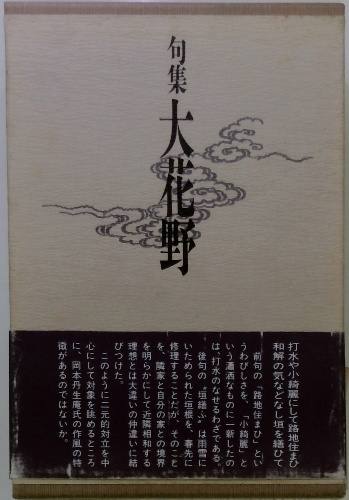 句集
大花野
打水や小綺麗にして路地住まひ
和解の気などなし垣を繕ひて
前句の「路地住まひ」とい
うわびしさを、「小綺麗」と
いう瀟洒なものに一新したの
は、打水のなせるわざである。
後句の〝垣繕ふ〟は雨雪に
いためられた垣根を、春先に
修理することだが、そのこと
を、隣家と自分の家との境界
を明らかにして近隣相和する
理想とは大違いの仲違いに結
びつけた。
このように二元的対立を中
心にして対象を眺めるところ
に、岡本丹生庵氏の作風の特
徴があるのではないか。